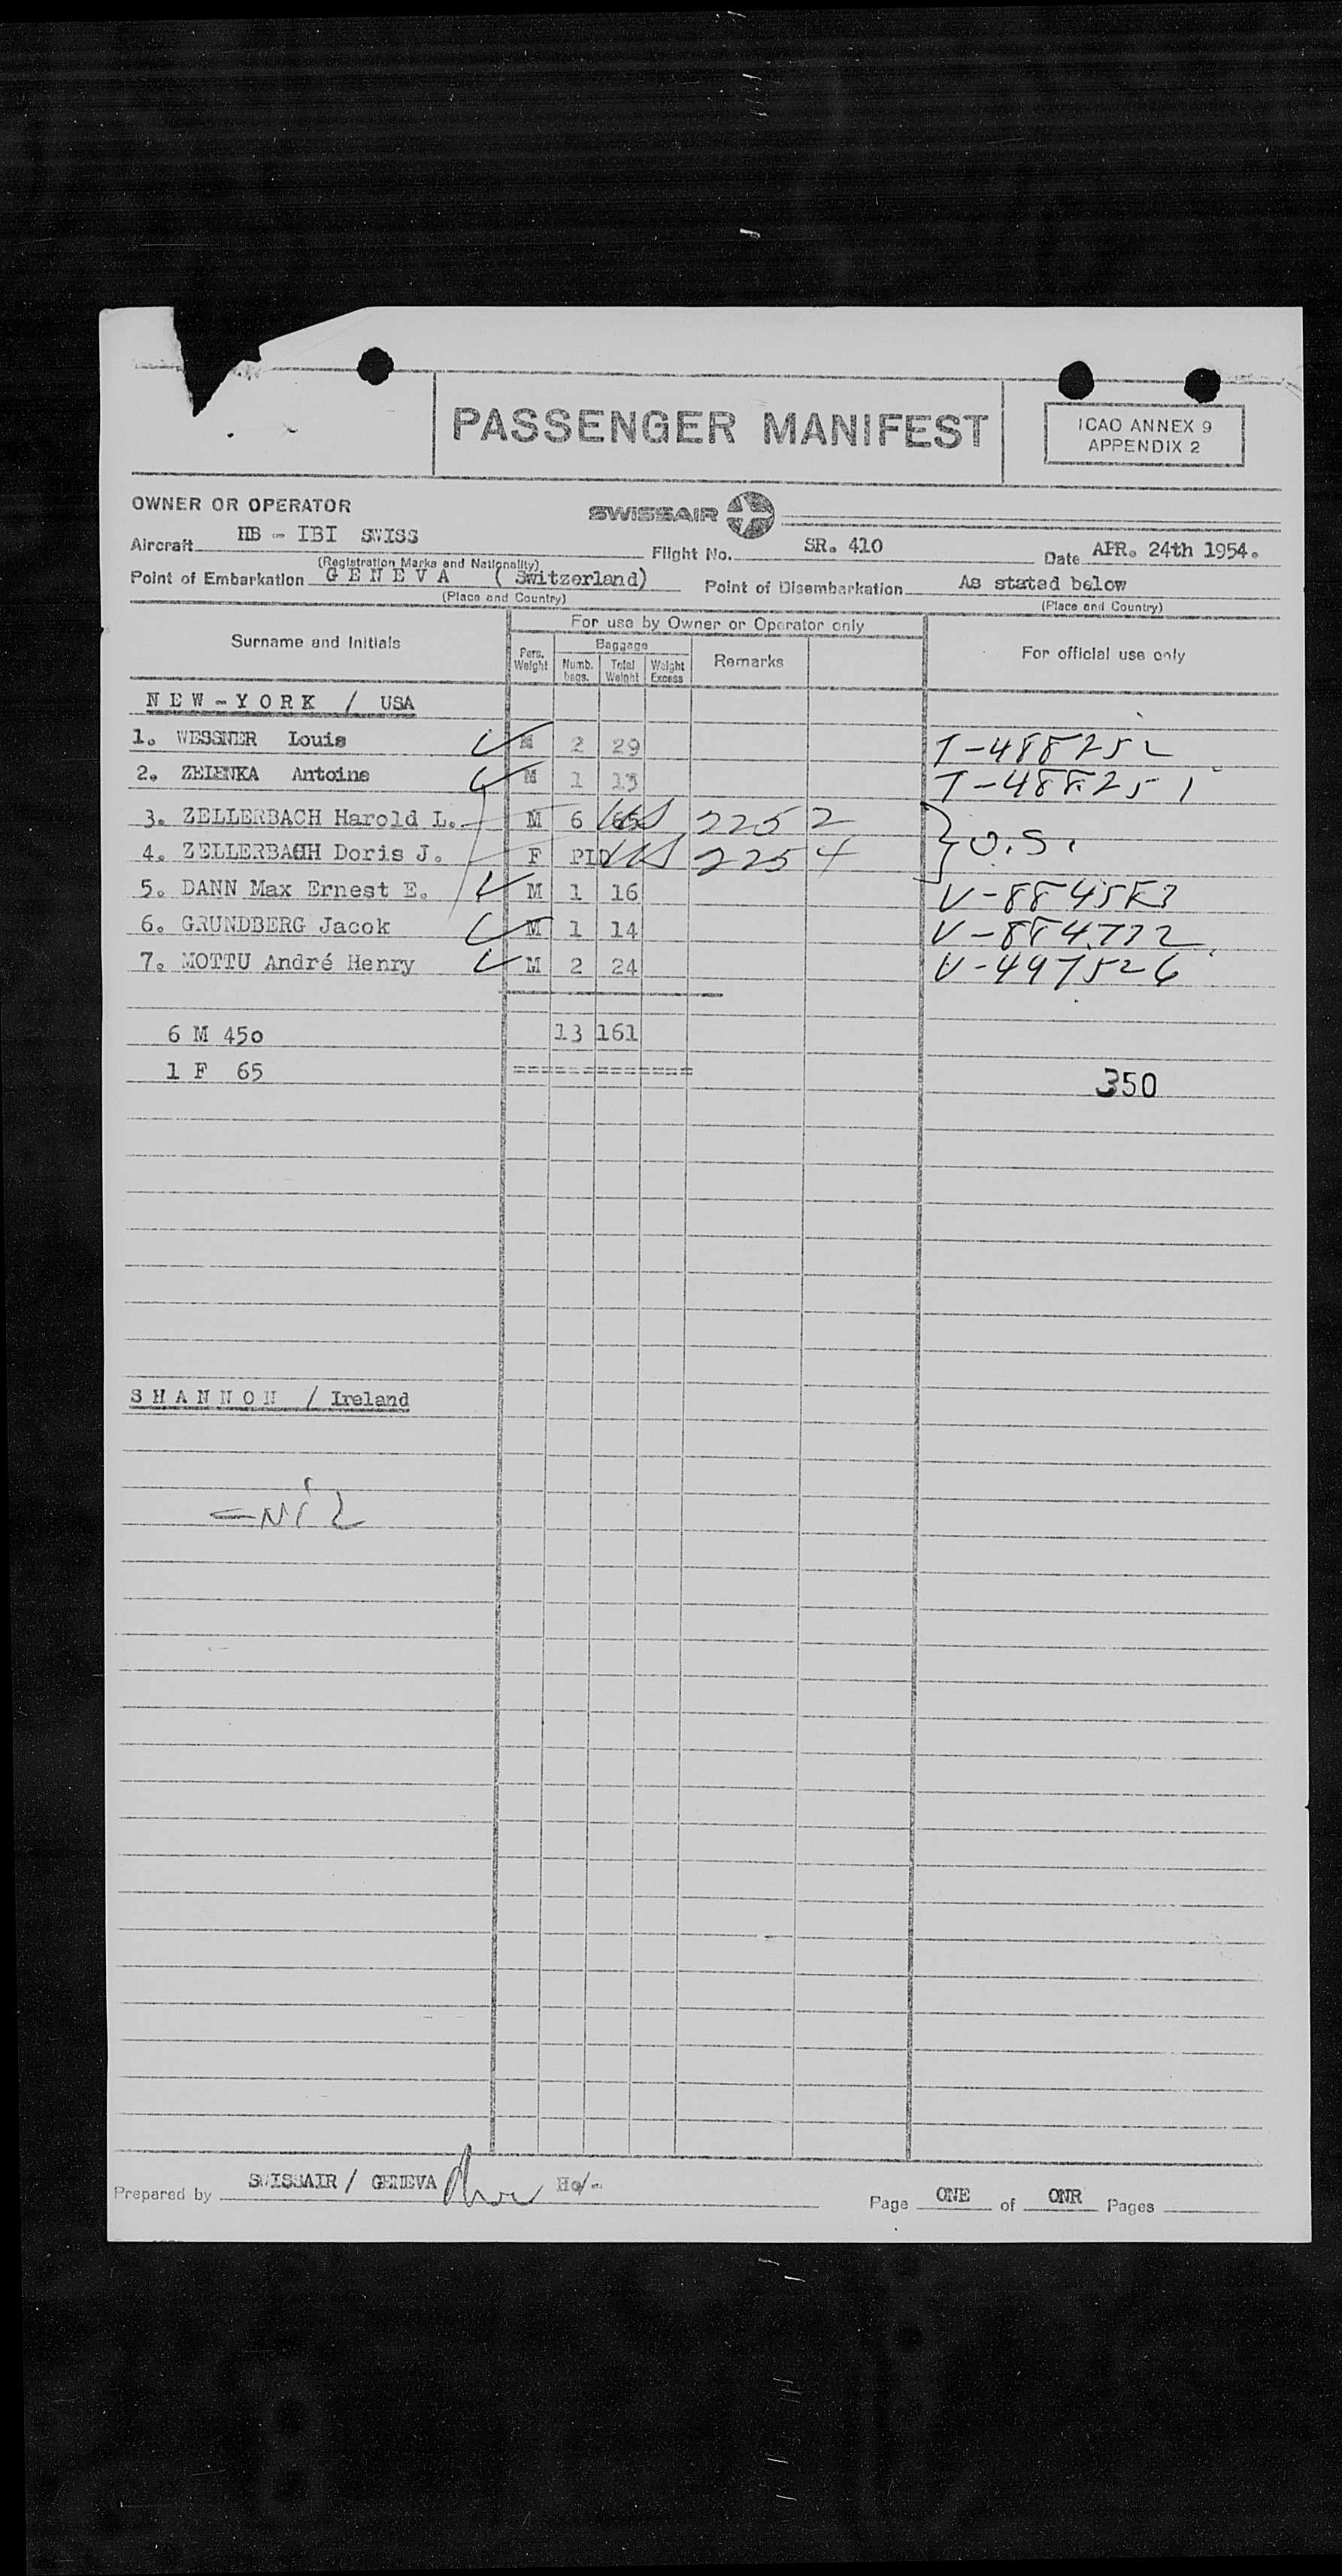 PASSENGER MANIFEST
ICAO ANNEX 9
APPENDIX 2
OWNER OR OPERATOR
SWISSAIR
Aircraft HB - IBI SWISS Flight No. SR. 410 Date APR. 24th 1954.
(Registration Marks and Nationality)
Point of Embarkation G E N E V A ( Switzerland) Point of Disembarkation As stated below
(Place and Country) (Place and Country)
Surname and Initials
For use by Owner or Operator only
For official use only
Pers. Weight
Baggage
Numb. bags.
Total Weight
Weight Excess
Remarks
N E W - Y O R K / USA
1. WESSNER Louis M 2 29 T-488252
2. ZELENKA Antoine M 1 13 T-488251
3. ZELLERBACH Harold L. M 6 65 2252
4. ZELLERBACH Doris J. F PLD 2254 U.S.
5. DANN Max Ernest E. M 1 16 V-884583
6. GRUNDBERG Jacok M 1 14 V-884772
7. MOTTU André Henry M 2 24 V-497526
6 M 450 13 161
1 F 65 ==============
350
S H A N N O N / Ireland
-NIL
Prepared by SWISSAIR / GENEVA Ho/-
Page ONE of ONR Pages